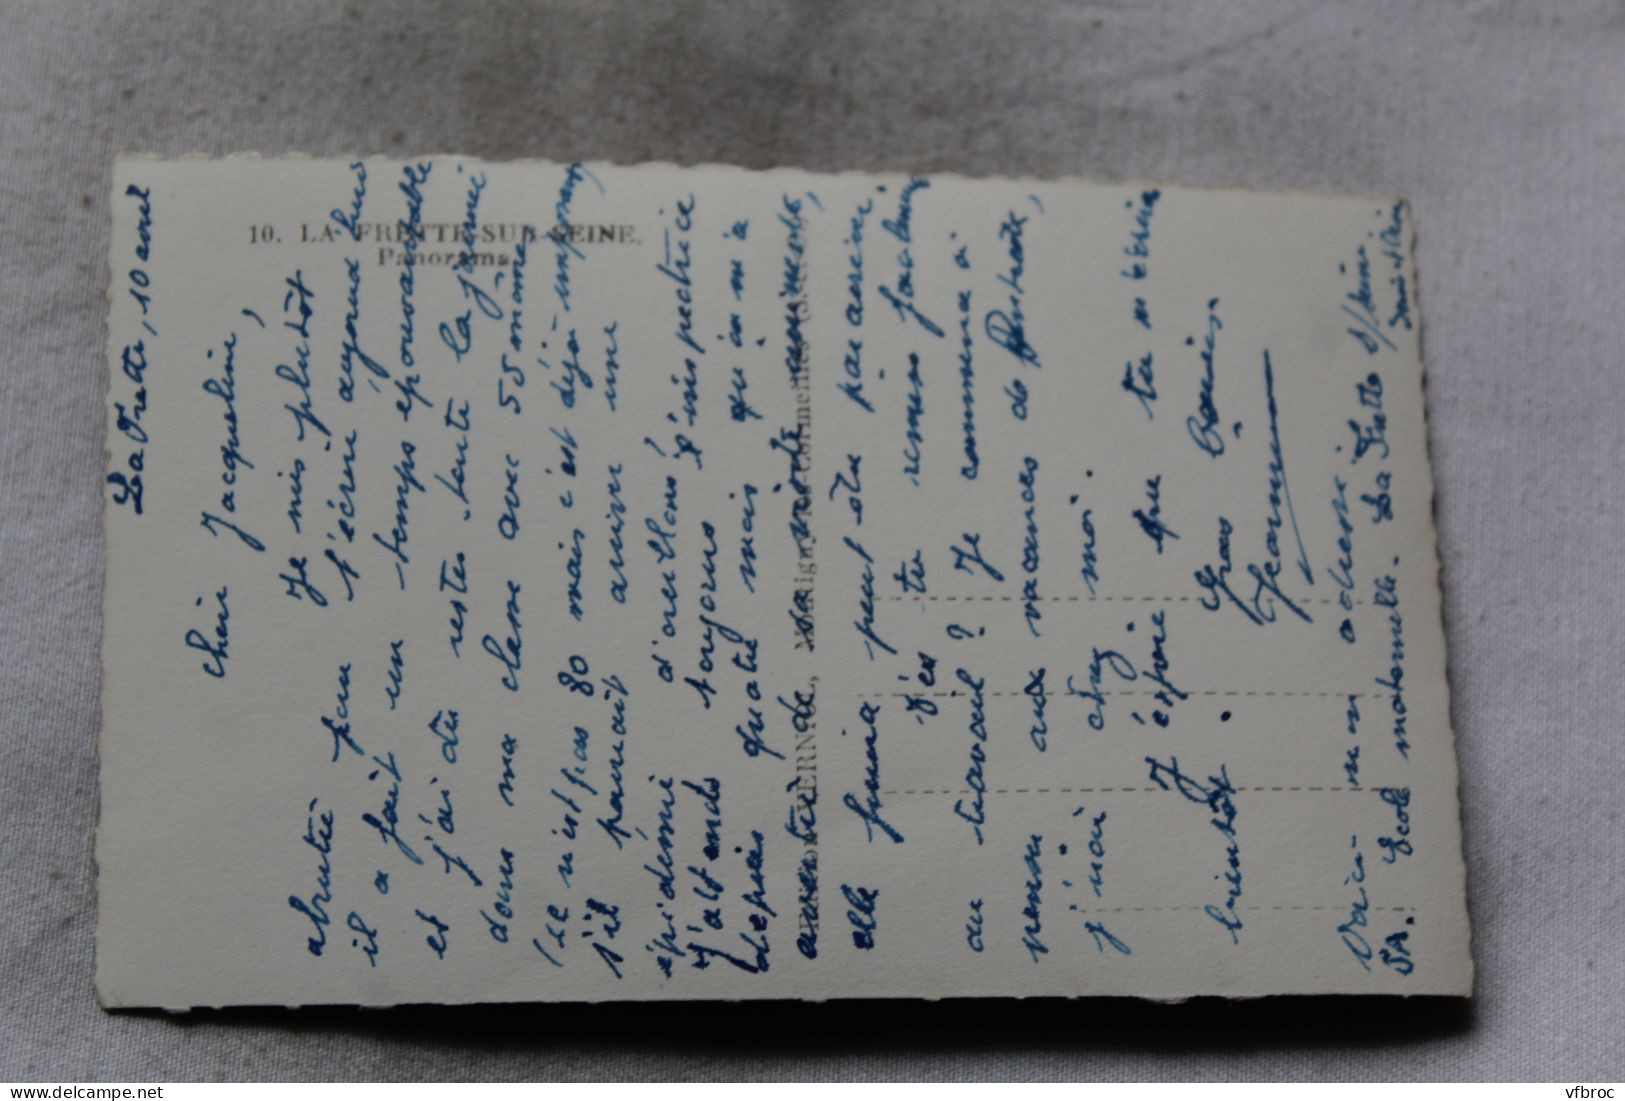 10. LA FRETTE-SUR-SEINE.
Panorama.
La Frette, 10 avril
Chère Jacqueline,
Je suis plutôt
abrutie pour t'écrire aujourd'hui
il a fait un temps épouvantable
et j'ai dû rester toute la journée
dans ma classe avec 55 mômes,
(ce n'est pas 80 mais c'est déjà
s'il pouvait avoir une
épidémie d'oreillons!
J'attends toujours l'inspectrice
depuis quatre mois qu'on m'a
sa visite imminente,
elle finira peut être par arriver.
T'es tu remise
au travail? Je commence à
penser aux vacances de Pentecôte,
j'irai chez moi.
J'espère que tu m'écriras
bientôt. Gros baisers.
Jeannine
Voici mon adresse:
SA. Ecole maternelle. La Frette s/Seine
vfbroc